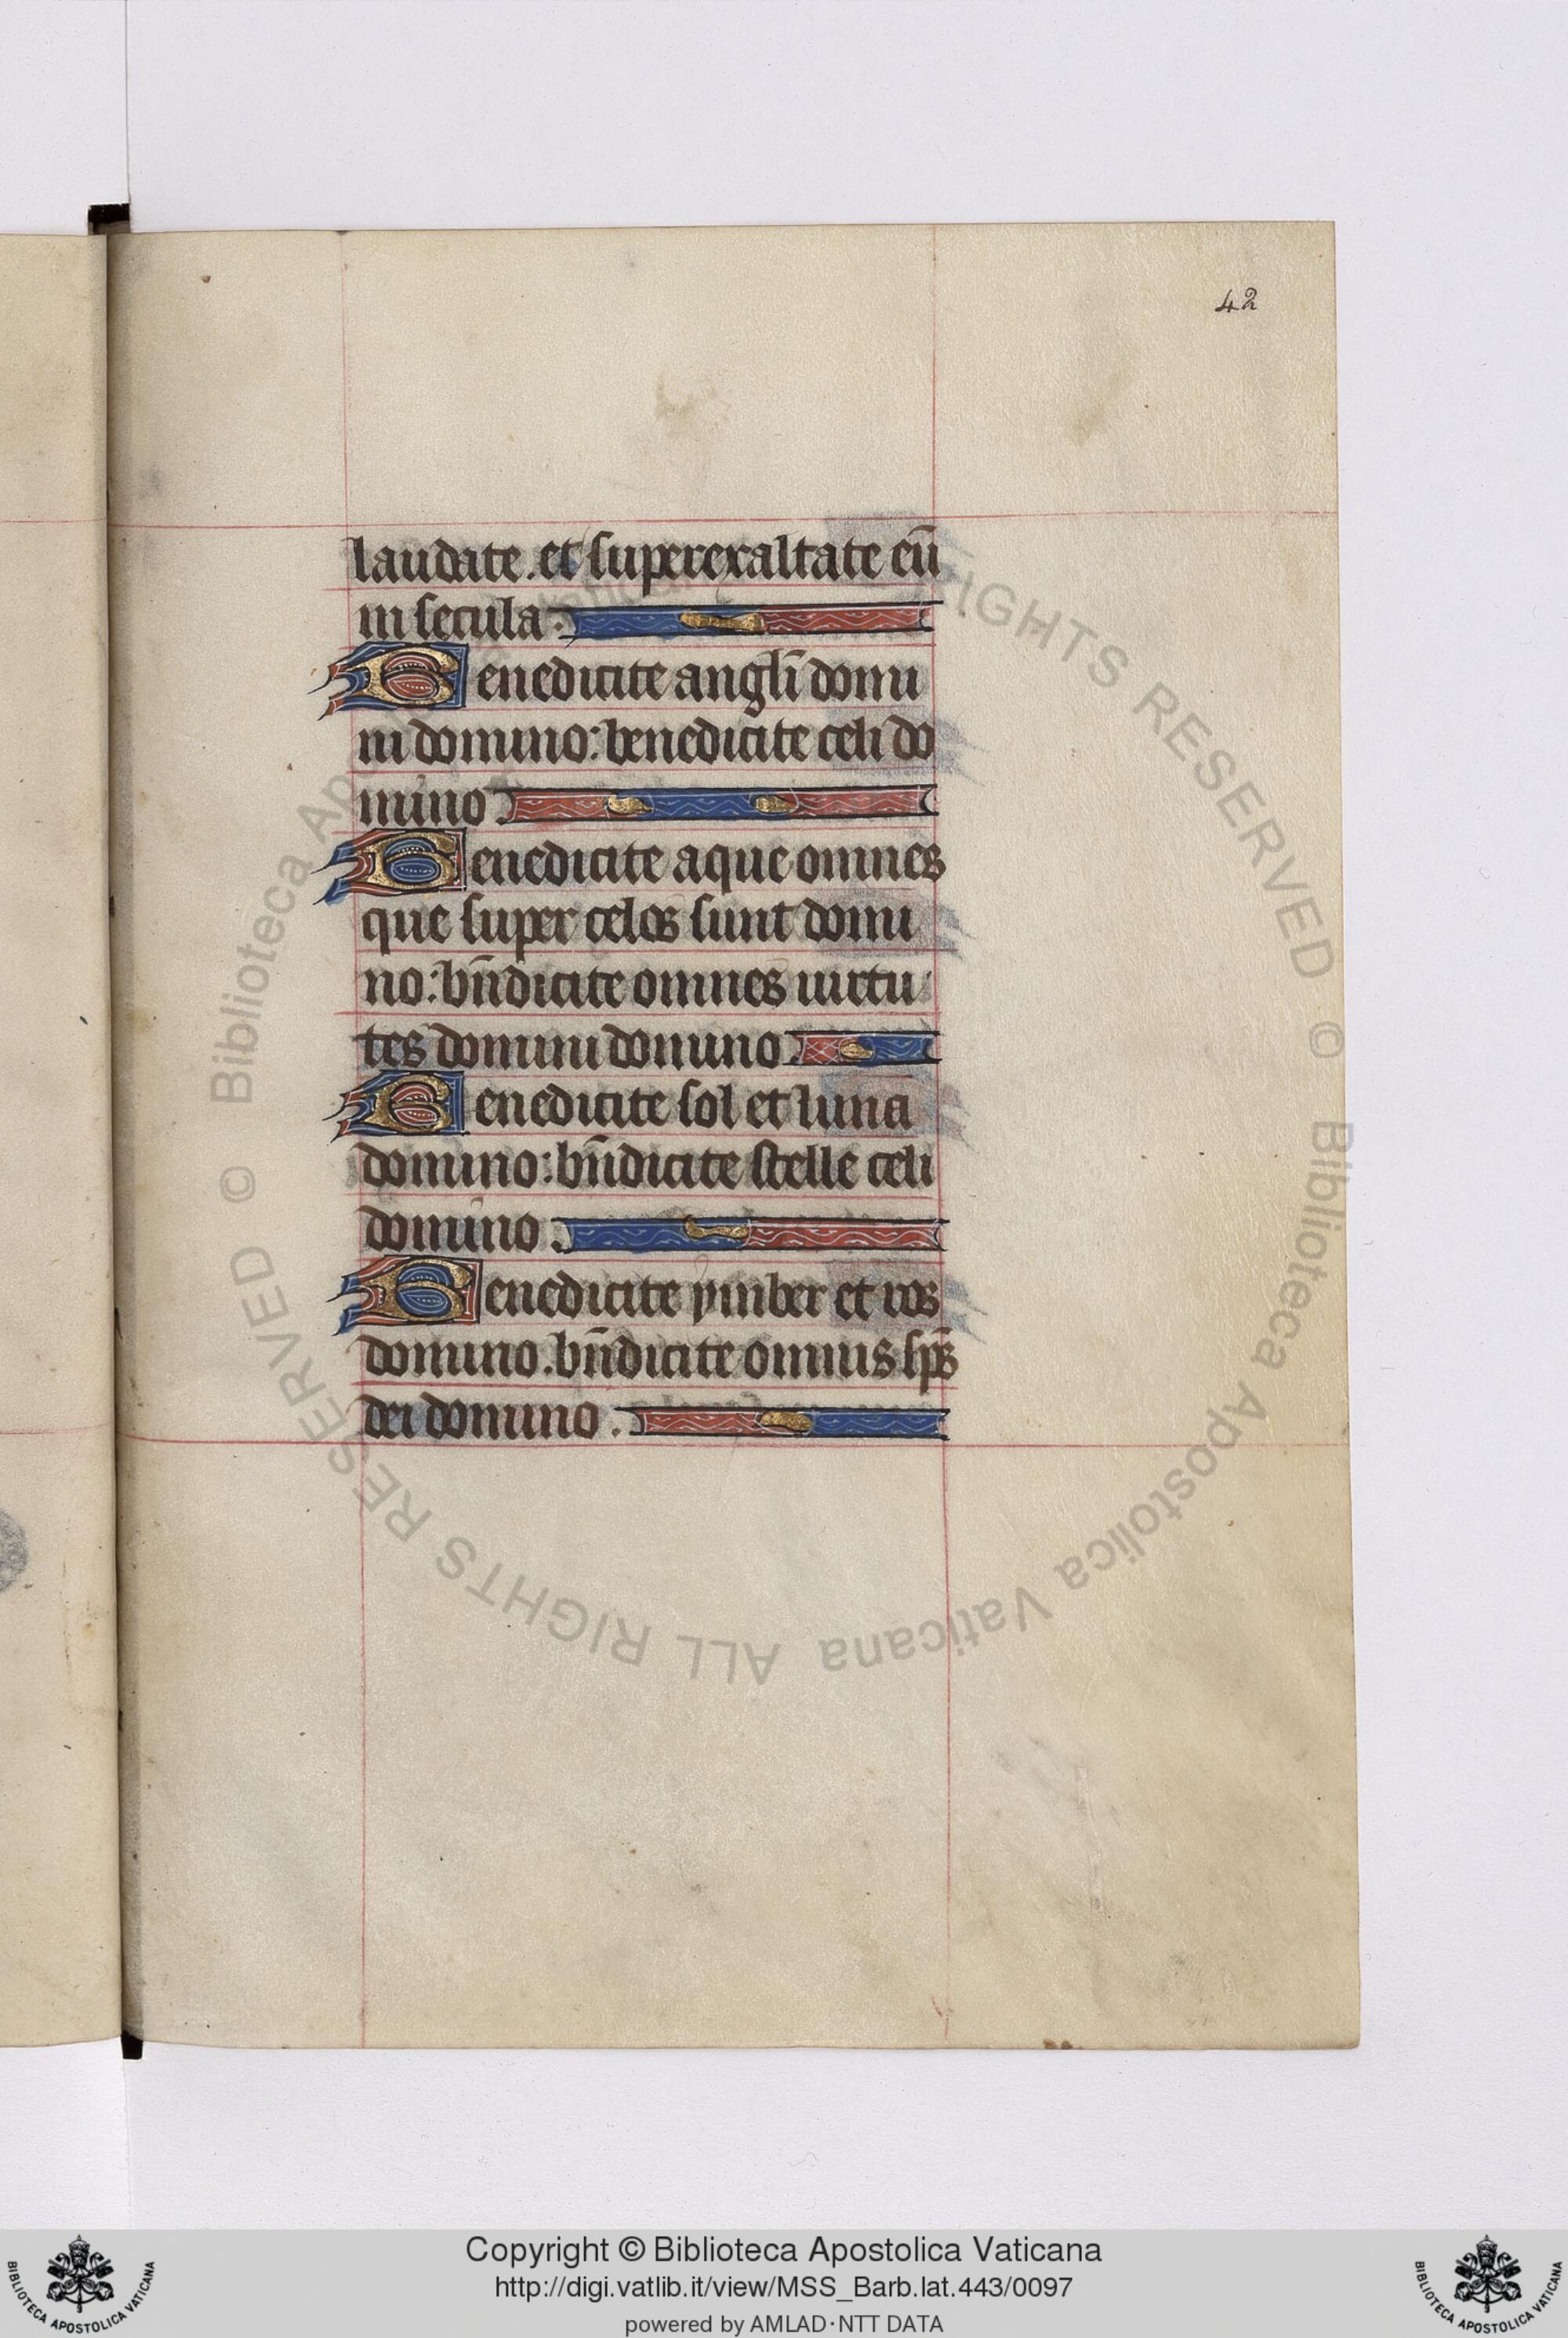 42
laudate. et superexaltate eū
in secula.
Benedicite angl̄i domi
ni domino: benedicite celi do
mino.
Benedicite aque omnes
que super celos sunt domi
no: bn̄dicite omnes uirtu
tes domini domino.
Benedicite sol et luna
domino: bn̄dicite stelle celi
domino.
Benedicite ymber et ros
domino. bn̄dicite omnis sp̄s
dei domino.
© Biblioteca Apostolica Vaticana ALL RIGHTS RESERVED © Biblioteca Apostolica Vaticana ALL RIGHTS RESERVED
Copyright © Biblioteca Apostolica Vaticana
http://digi.vatlib.it/view/MSS_Barb.lat.443/0097
powered by AMLAD·NTT DATA
BIBLIOTECA APOSTOLICA VATICANA
BIBLIOTECA APOSTOLICA VATICANA